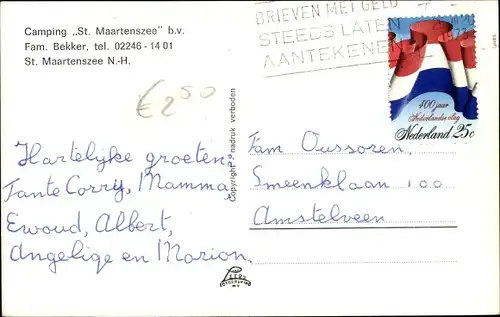 Camping „St. Maartenszee" b.v.
Fam. Bekker, tel. 02246 - 14 01
St. Maartenszee N.-H.
BRIEVEN MET GELD
STEEDS LATEN
AANTEKENEN
400 jaar
Nederlandse vlag
Nederland 25c
€ 2,50
Hartelijke groeten
Tante Corry, Mamma,
Ewoud, Albert,
Angelige en Marion.
Copyright nadruk verboden
Fam Oussoren.
Smeenklaan 100
Amstelveen